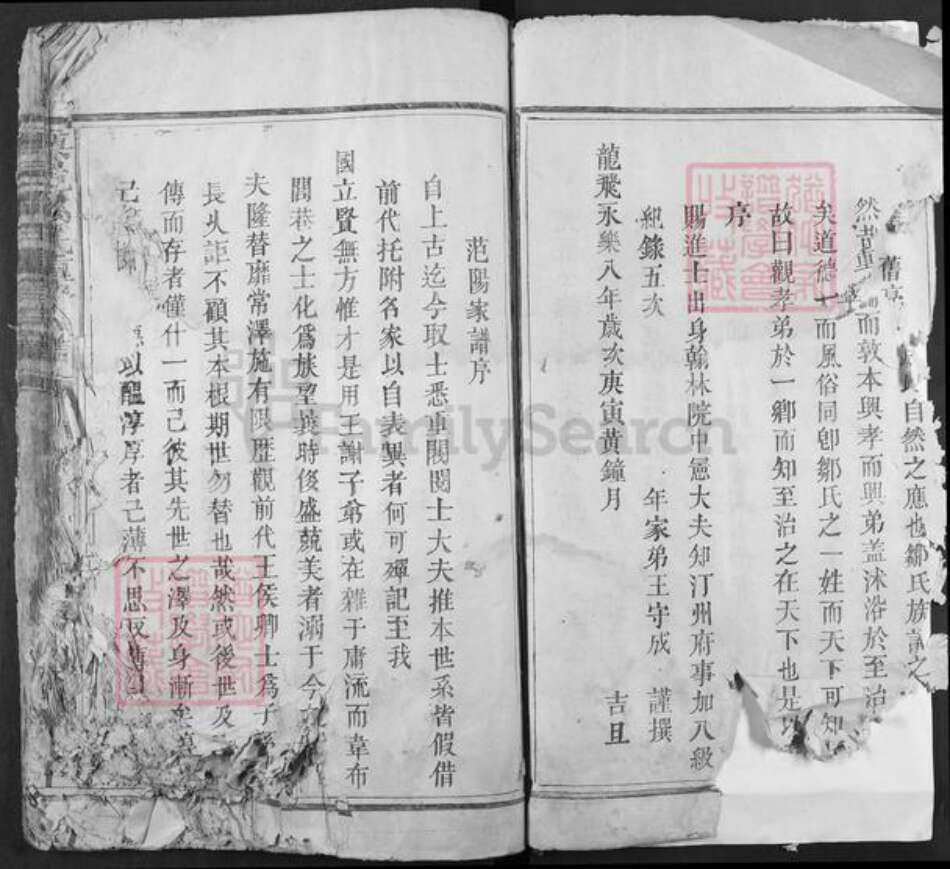 舊序
自然之應也鄒氏族譜之
然昔 而敦本興孝而興弟盖沐浴於至治
矣道德一而風俗同卽鄒氏之一姓而天下可知
故曰觀孝弟於一鄉而知至治之在天下也是以
序
賜進士出身翰林院中憲大夫知汀州府事加八級
紀錄五次 年家弟王守成 謹撰
龍飛永樂八年歲次庚寅黃鐘月 吉旦
范陽家譜序
自上古迄今取士悉重閥閱士大夫推本世系皆假借
前代托附名家以自表異者何可殫記至我
國立賢無方惟才是用王謝子弟或在雜于庸流而韋布
閭巷之士化爲族望英時後盛兢美者溺于今
夫隆替靡常澤施有限歷觀前代王侯卿士爲子孫
長久詎不顧其本根期世勿替也哉然或後世及
傳而存者僅什一而己彼其先世之澤及身漸
己 以醞淳淳者己薄不思反
FamilySearch